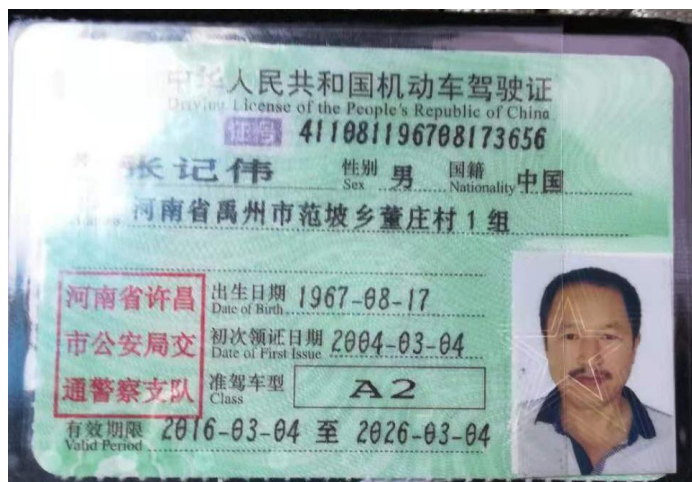 中华人民共和国机动车驾驶证
Driving License of the People's Republic of China
证号 411081196708173656
张记伟 性别 Sex 男 国籍 Nationality 中国
河南省禹州市范坡乡董庄村1组
河南省许昌
市公安局交
通警察支队
出生日期 Date of Birth 1967-08-17
初次领证日期 Date of First Issue 2004-03-04
准驾车型 Class A2
有效期限 Valid Period 2016-03-04 至 2026-03-04